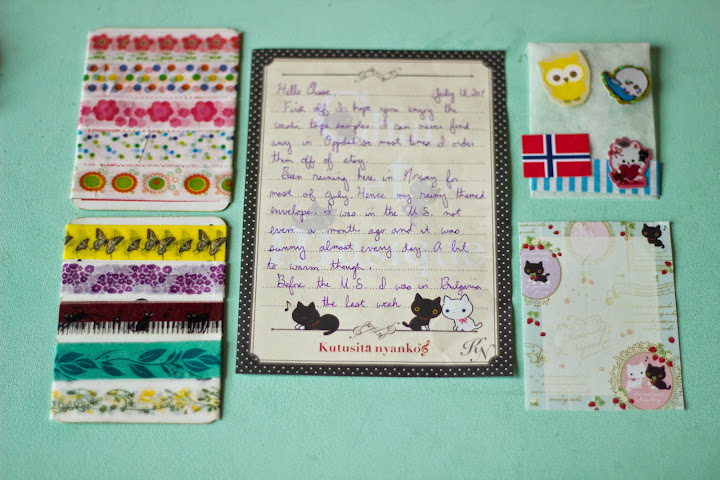 Hello
July 18, 201
First off I hope you enjoy the
washi tape samples. I can never find
any in Oppdal so most times I order
them off of etsy.
Been raining here in Norway for
most of July. Hence my rainy themed
envelope. I was in the U.S. not
even a month ago and it was
sunny almost every day. A bit
to warm though.
Before the U.S. I was in Bulgaria
the last week
Kutusita nyanko
KN